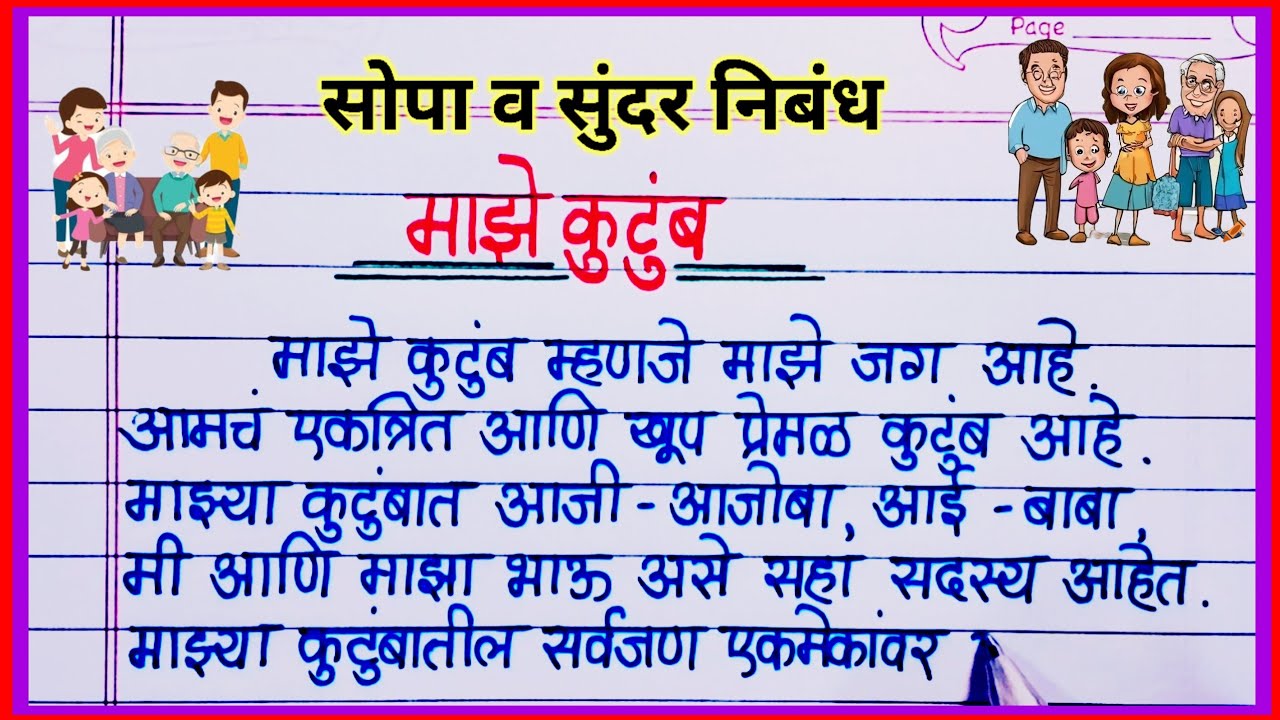 Page
सोपा व सुंदर निबंध
माझे कुटुंब
माझे कुटुंब म्हणजे माझे जग आहे.
आमचं एकत्रित आणि खूप प्रेमळ कुटुंब आहे.
माझ्या कुटुंबात आजी - आजोबा, आई - बाबा,
मी आणि माझा भाऊ असे सहा सदस्य आहेत.
माझ्या कुटुंबातील सर्वजण एकमेकांवर